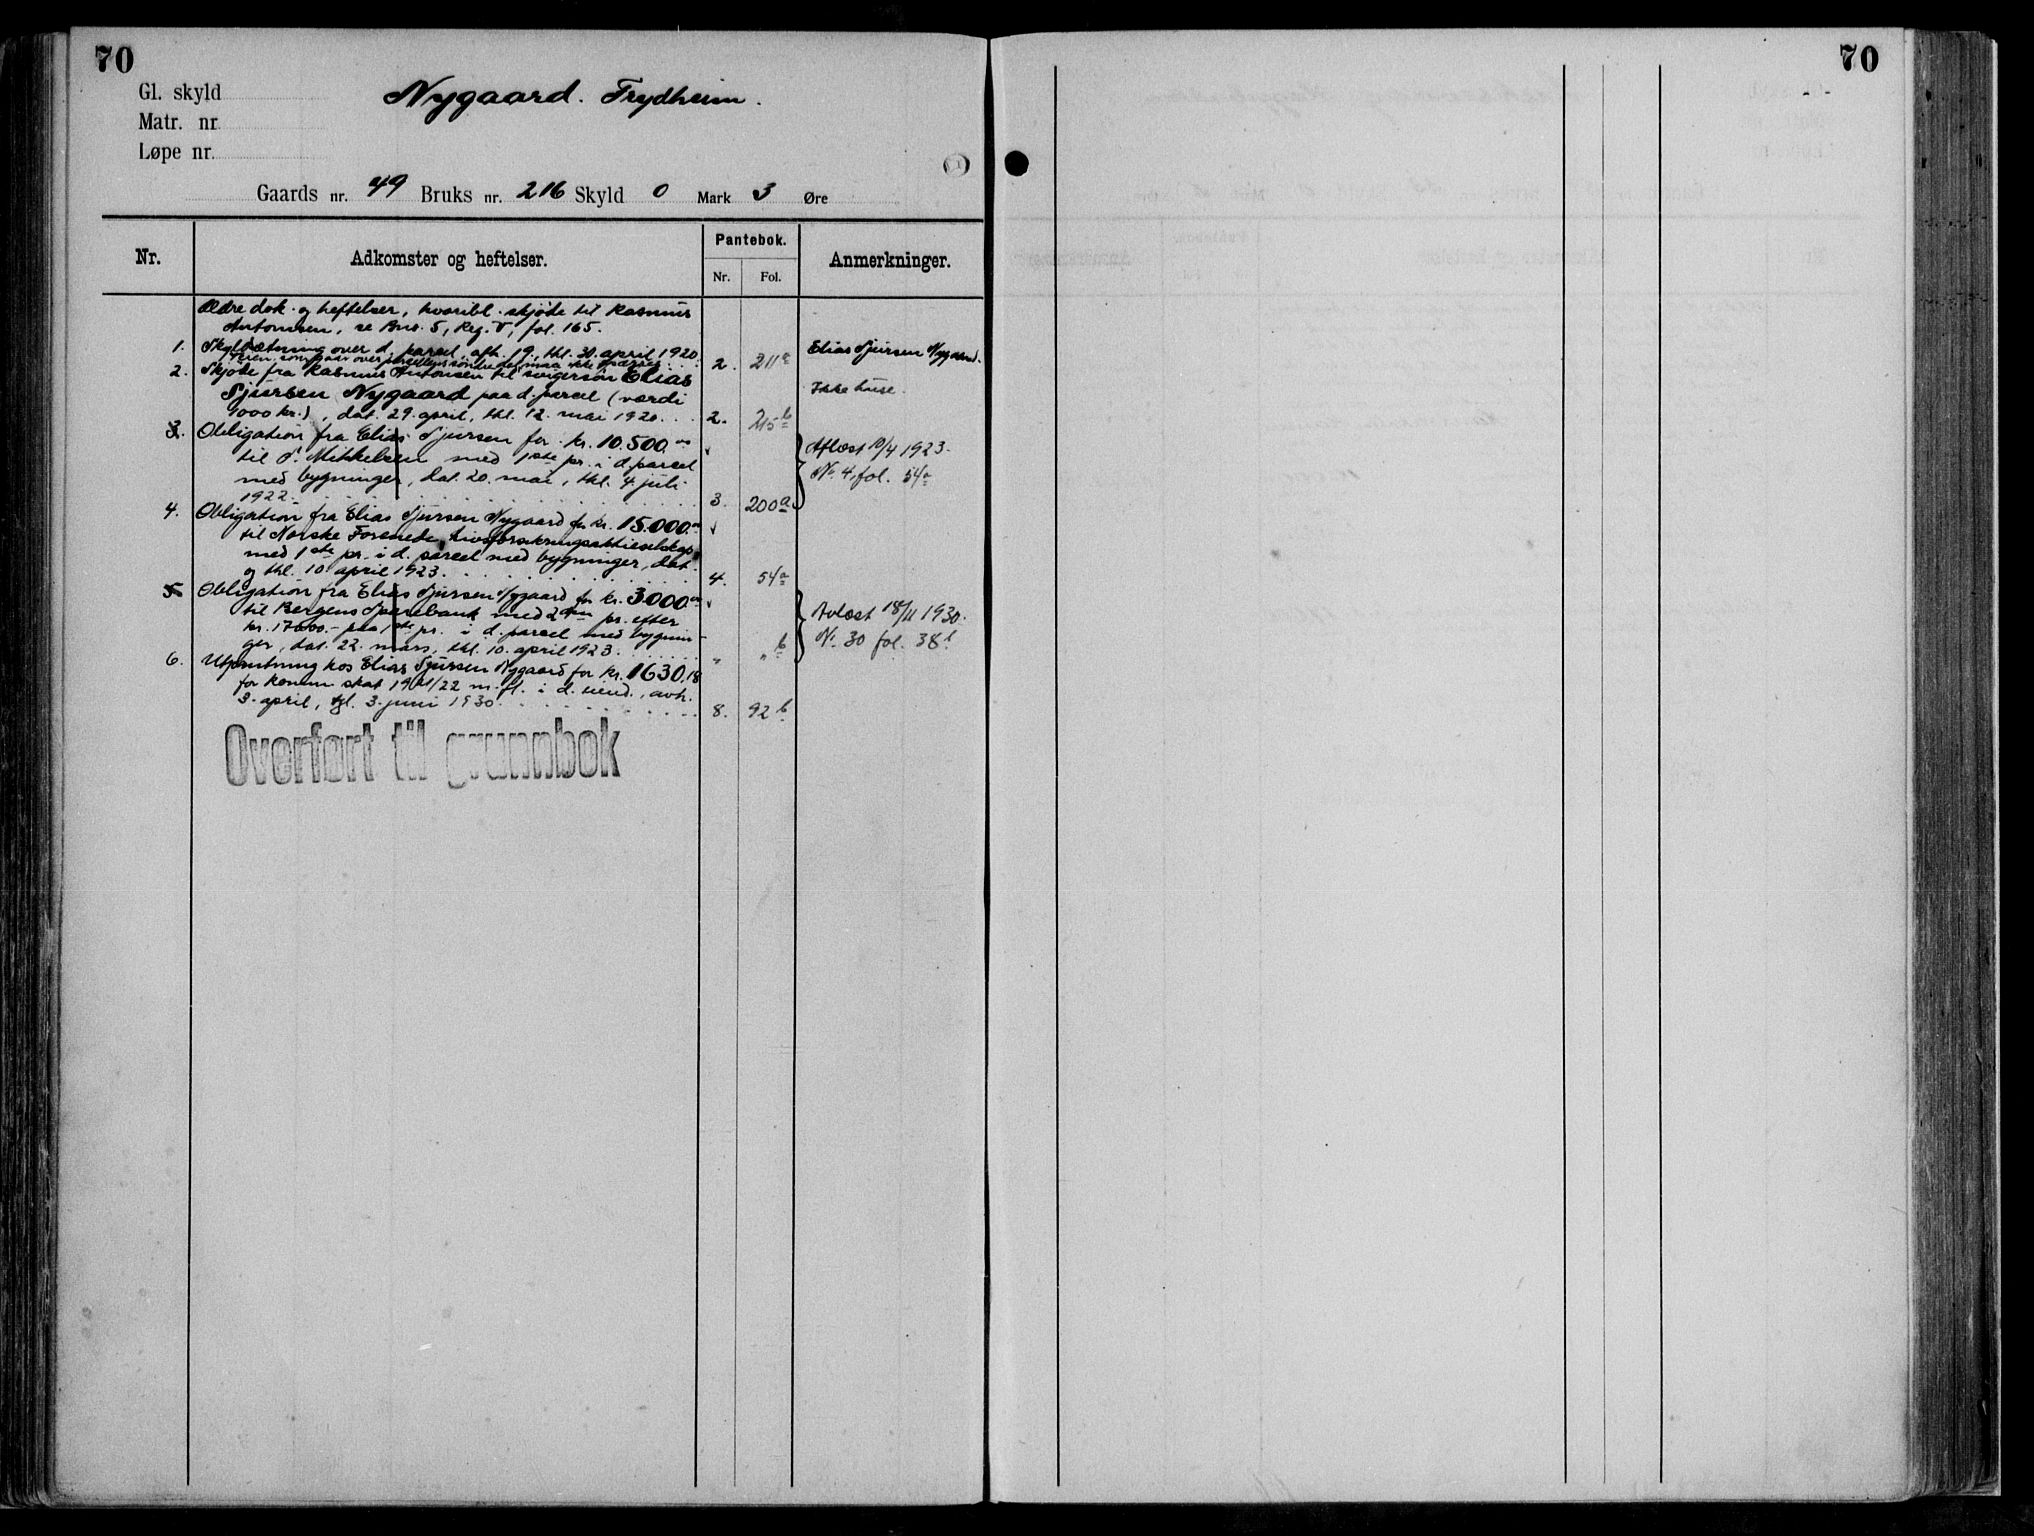 70
70
Gl. skyld
Nygaard. Frydheim.
Matr. nr
Løpe nr.
Gaards nr. 49 Bruks nr. 216 Skyld 0 Mark 3 Øre
Nr.
Adkomster og heftelser.
Pantebok.
Nr. Fol.
Anmerkninger.
Ældre dok. og heftelser, hvoribl. skjøte til Rasmus
Antonsen, se Bnr. 5, Reg. V, fol. 165.
1. Skyldsætning over d. parcel, afh. 19., thl. 30. april 1920. 2. 211a Elias Sjursen Nygaard.
Veien som gaar over parcellens søndre del maa ikke spærres
2. Skjøte fra Rasmus Antonsen til svigersøn Elias
Sjursen Nygaard paa d. parcel (værdi Ikke huse.
1000 kr.), dat. 29. april, thl. 12. mai 1920. 2. 215b
3. Obligation fra Elias Sjursen for kr. 10.500.00
til S. Mikkelsen med 1ste pr. i d. parcel Aflæst 10/4 1923.
med bygninger, dat. 20. mai, thl. 4. juli No. 4, fol. 54a
1922. 3. 200a
4. Obligation fra Elias Sjursen Nygaard for kr. 15.000.00
til Norske Forenede Livsforsikringsaktieselskap
med 1ste pr. i d. parcel med bygninger, dat.
og thl. 10. april 1923. 4. 54a
5. Obligation fra Elias Sjursen Nygaard for kr. 3000.00
til Bergens Sparebank med 2den pr. efter Avlæst 18/11 1930.
kr. 17000.- paa 1ste pr. i d. parcel med bygnin- No. 30 fol. 38b
ger, dat. 22. mars, thl. 10. april 1923. " " b
6. Utpantning hos Elias Sjursen Nygaard for kr. 1630.18
for komm. skat 1921/22 m. fl. i d. eiend., avh.
3. april, tgl. 3. juni 1930. 8. 92b
Overført til grunnbok